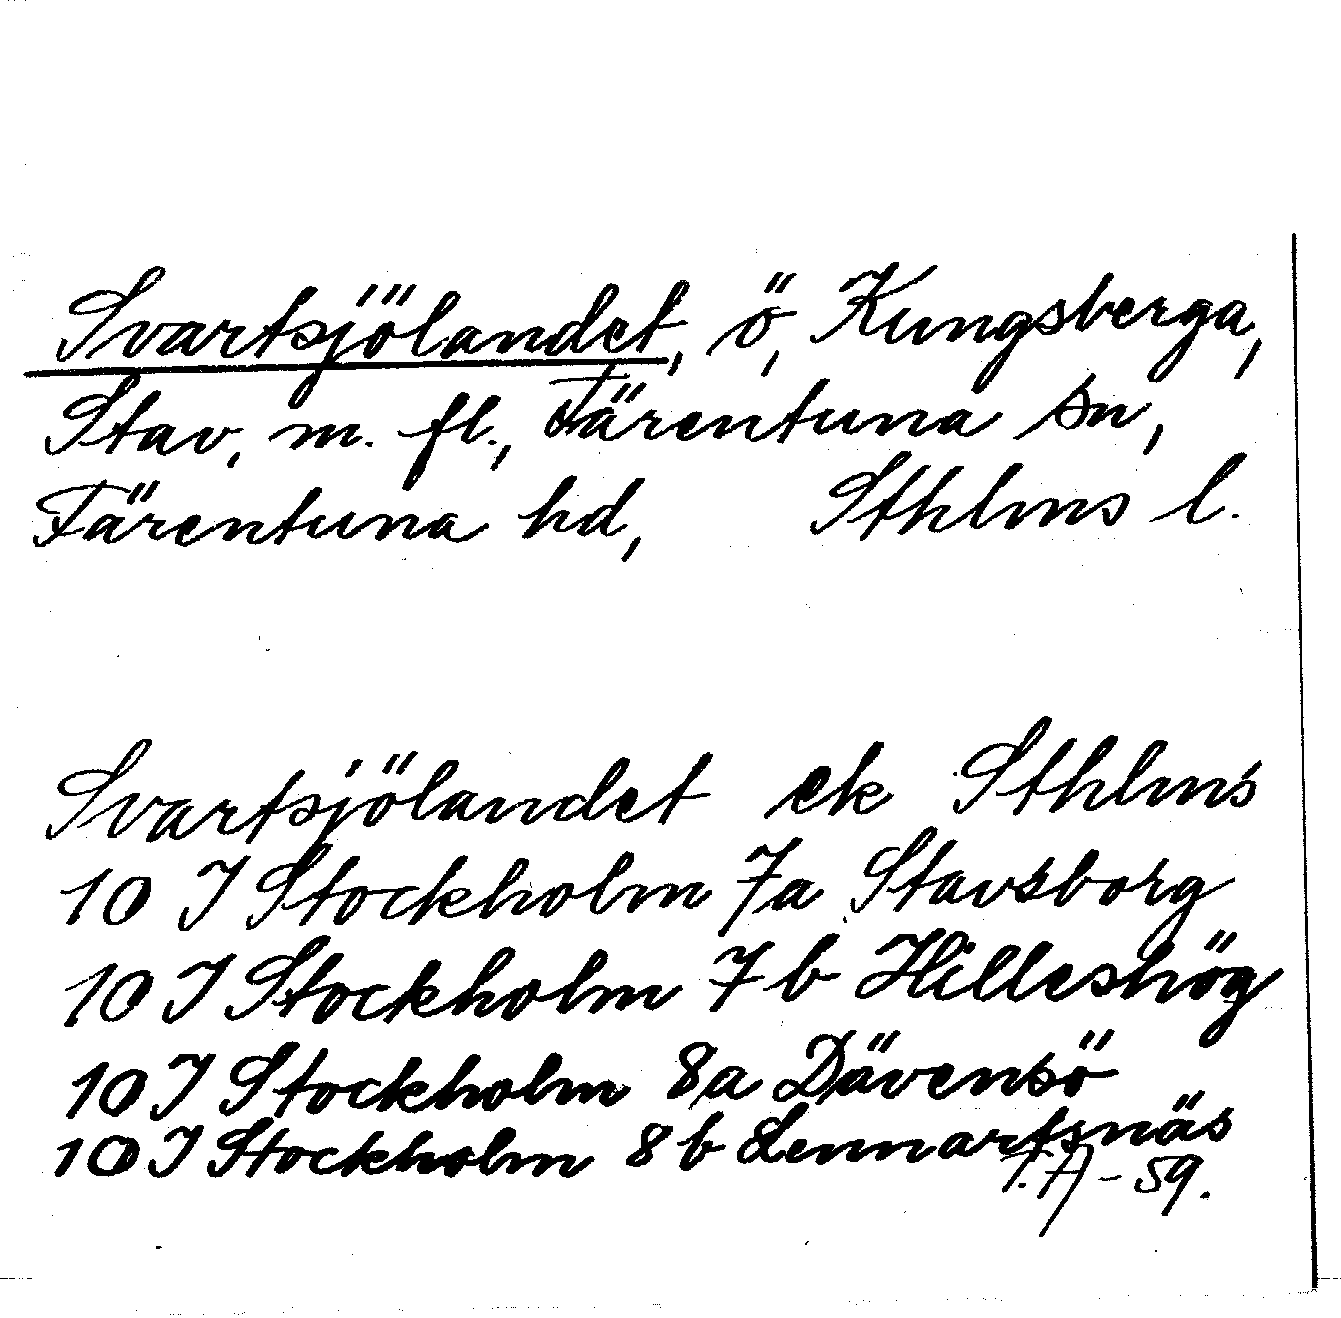 Svartsjölandet, ö, Kungsberga,
Stav, m. fl., Färentuna sn,
Färentuna hd, Sthlms l.
Svartsjölandet ek Sthlms
10 I Stockholm 7a Stavsborg
10 I Stockholm 7b Hilleshög
10 I Stockholm 8a Dävensö
10 I Stockholm 8b Lennartsnäs
-59.